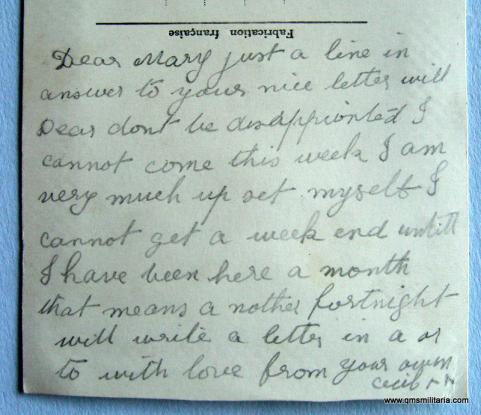 Fabrication française
Dear Mary just a line in
answer to your nice letter will
Dear dont be disappionted I
cannot come this week I am
very much up set myself I
cannot get a week end untill
I have been here a month
that means a nother fortnight
will write a letter in a
to with love from your own
Cecil xx
www.qmsmilitaria.com